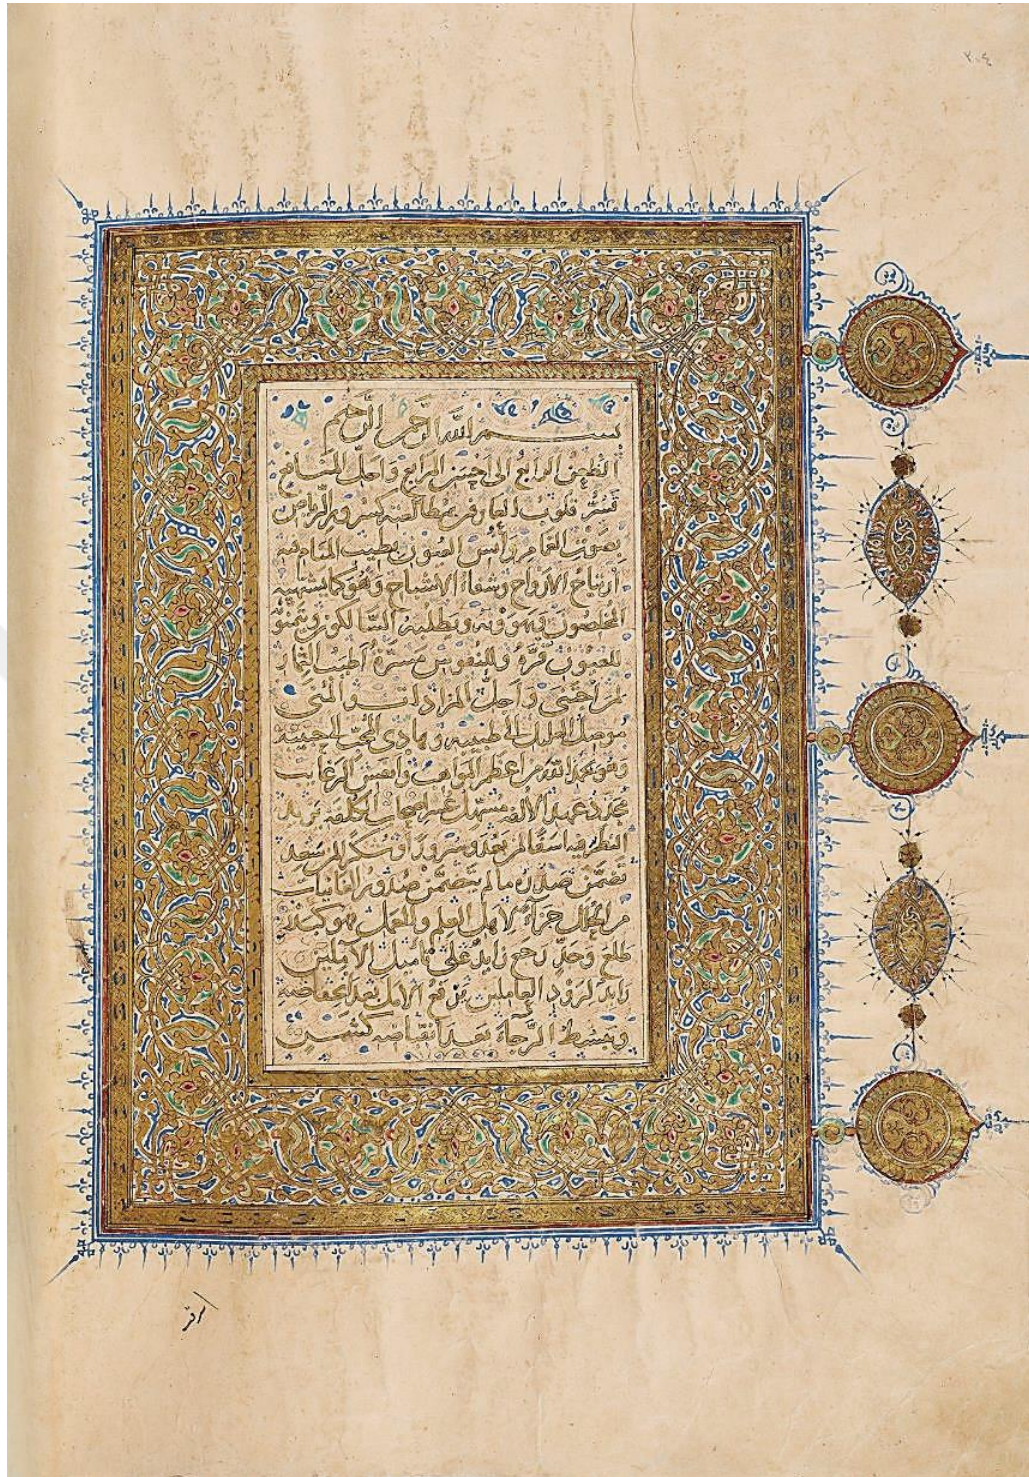 ٢٠٤
بسم الله الرحمن الرحيم
الظعن الرابع الى احسن المرابع واجل المنافع
تسر قلوب العارفين بمطالعته كسرور الرياض
بصوب الغمام وانس العيون بطيب المنام فيه
ارتياح الارواح وشفاء الاشباح وهو كما يشتهيه
المخلصون ويهوونه ويطلبه السالكون ويتمنونه
للعيون قرة وللنفوس مسرة اطيب الثمار
لمن اجتنى واجل المرادات والمنى
موصل العليل الى طبيبه وهادى المحب الى حبيبه
وهو بحمد الله من اعظم المواهب وانفس الرغايب
مجدد عهد الالفة مسهل عسر اصحاب الكلفة يزيد
النظر فيه اسفا لمن بعد وسرورا وشكرا لمن سعد
تضمن صدره ما لم يتضمن صدور الغانيات
من الحلل جزاء لاهل العلم والعمل فهو كبدر
طلع وجد رجع زايد على تاميل الاملين
رايد لرود العاملين يرفع الامل بعد انخفاضه
ويبسط الرجاء بعد انقباضه كشمس